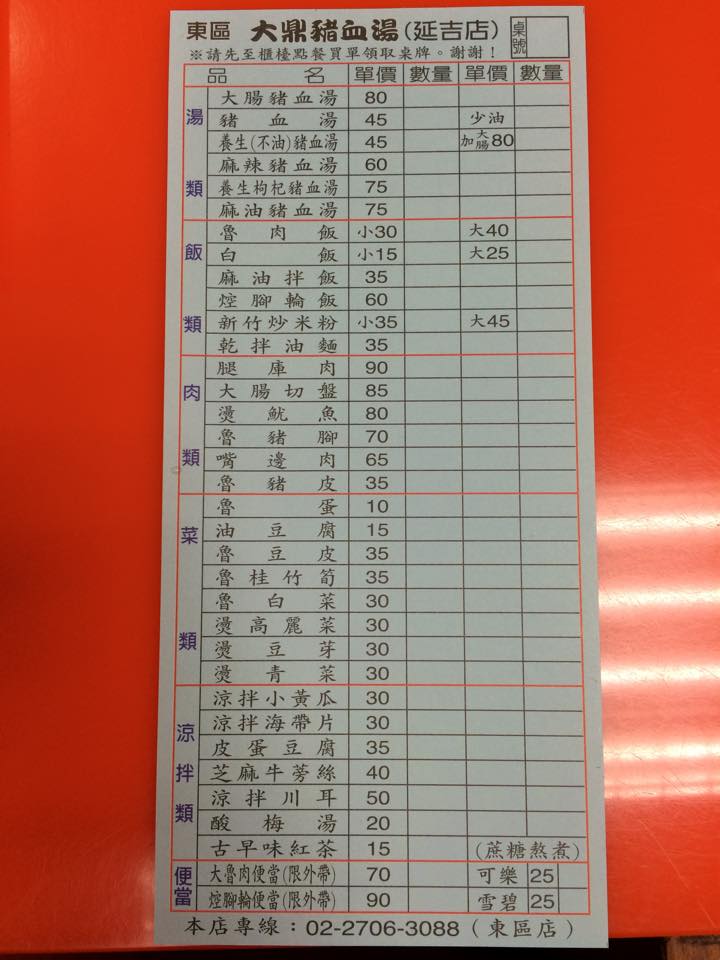 東區 大鼎豬血湯(延吉店) 桌號
※請先至櫃檯點餐買單領取桌牌。謝謝!
品名 單價 數量 單價 數量
湯類
大腸豬血湯 80
豬血湯 45 少油
養生(不油)豬血湯 45 加大腸80
麻辣豬血湯 60
養生枸杞豬血湯 75
麻油豬血湯 75
飯類
魯肉飯 小30 大40
白飯 小15 大25
麻油拌飯 35
焢腳輪飯 60
新竹炒米粉 小35 大45
乾拌油麵 35
肉類
腿庫肉 90
大腸切盤 85
燙魷魚 80
魯豬腳 70
嘴邊肉 65
魯豬皮 35
菜類
魯蛋 10
油豆腐 15
魯豆皮 35
魯桂竹筍 35
魯白菜 30
燙高麗菜 30
燙豆芽 30
燙青菜 30
涼拌類
涼拌小黃瓜 30
涼拌海帶片 30
皮蛋豆腐 35
芝麻牛蒡絲 40
涼拌川耳 50
酸梅湯 20
古早味紅茶 15 (蔗糖熬煮)
便當
大魯肉便當(限外帶) 70 可樂 25
焢腳輪便當(限外帶) 90 雪碧 25
本店專線:02-2706-3088(東區店)